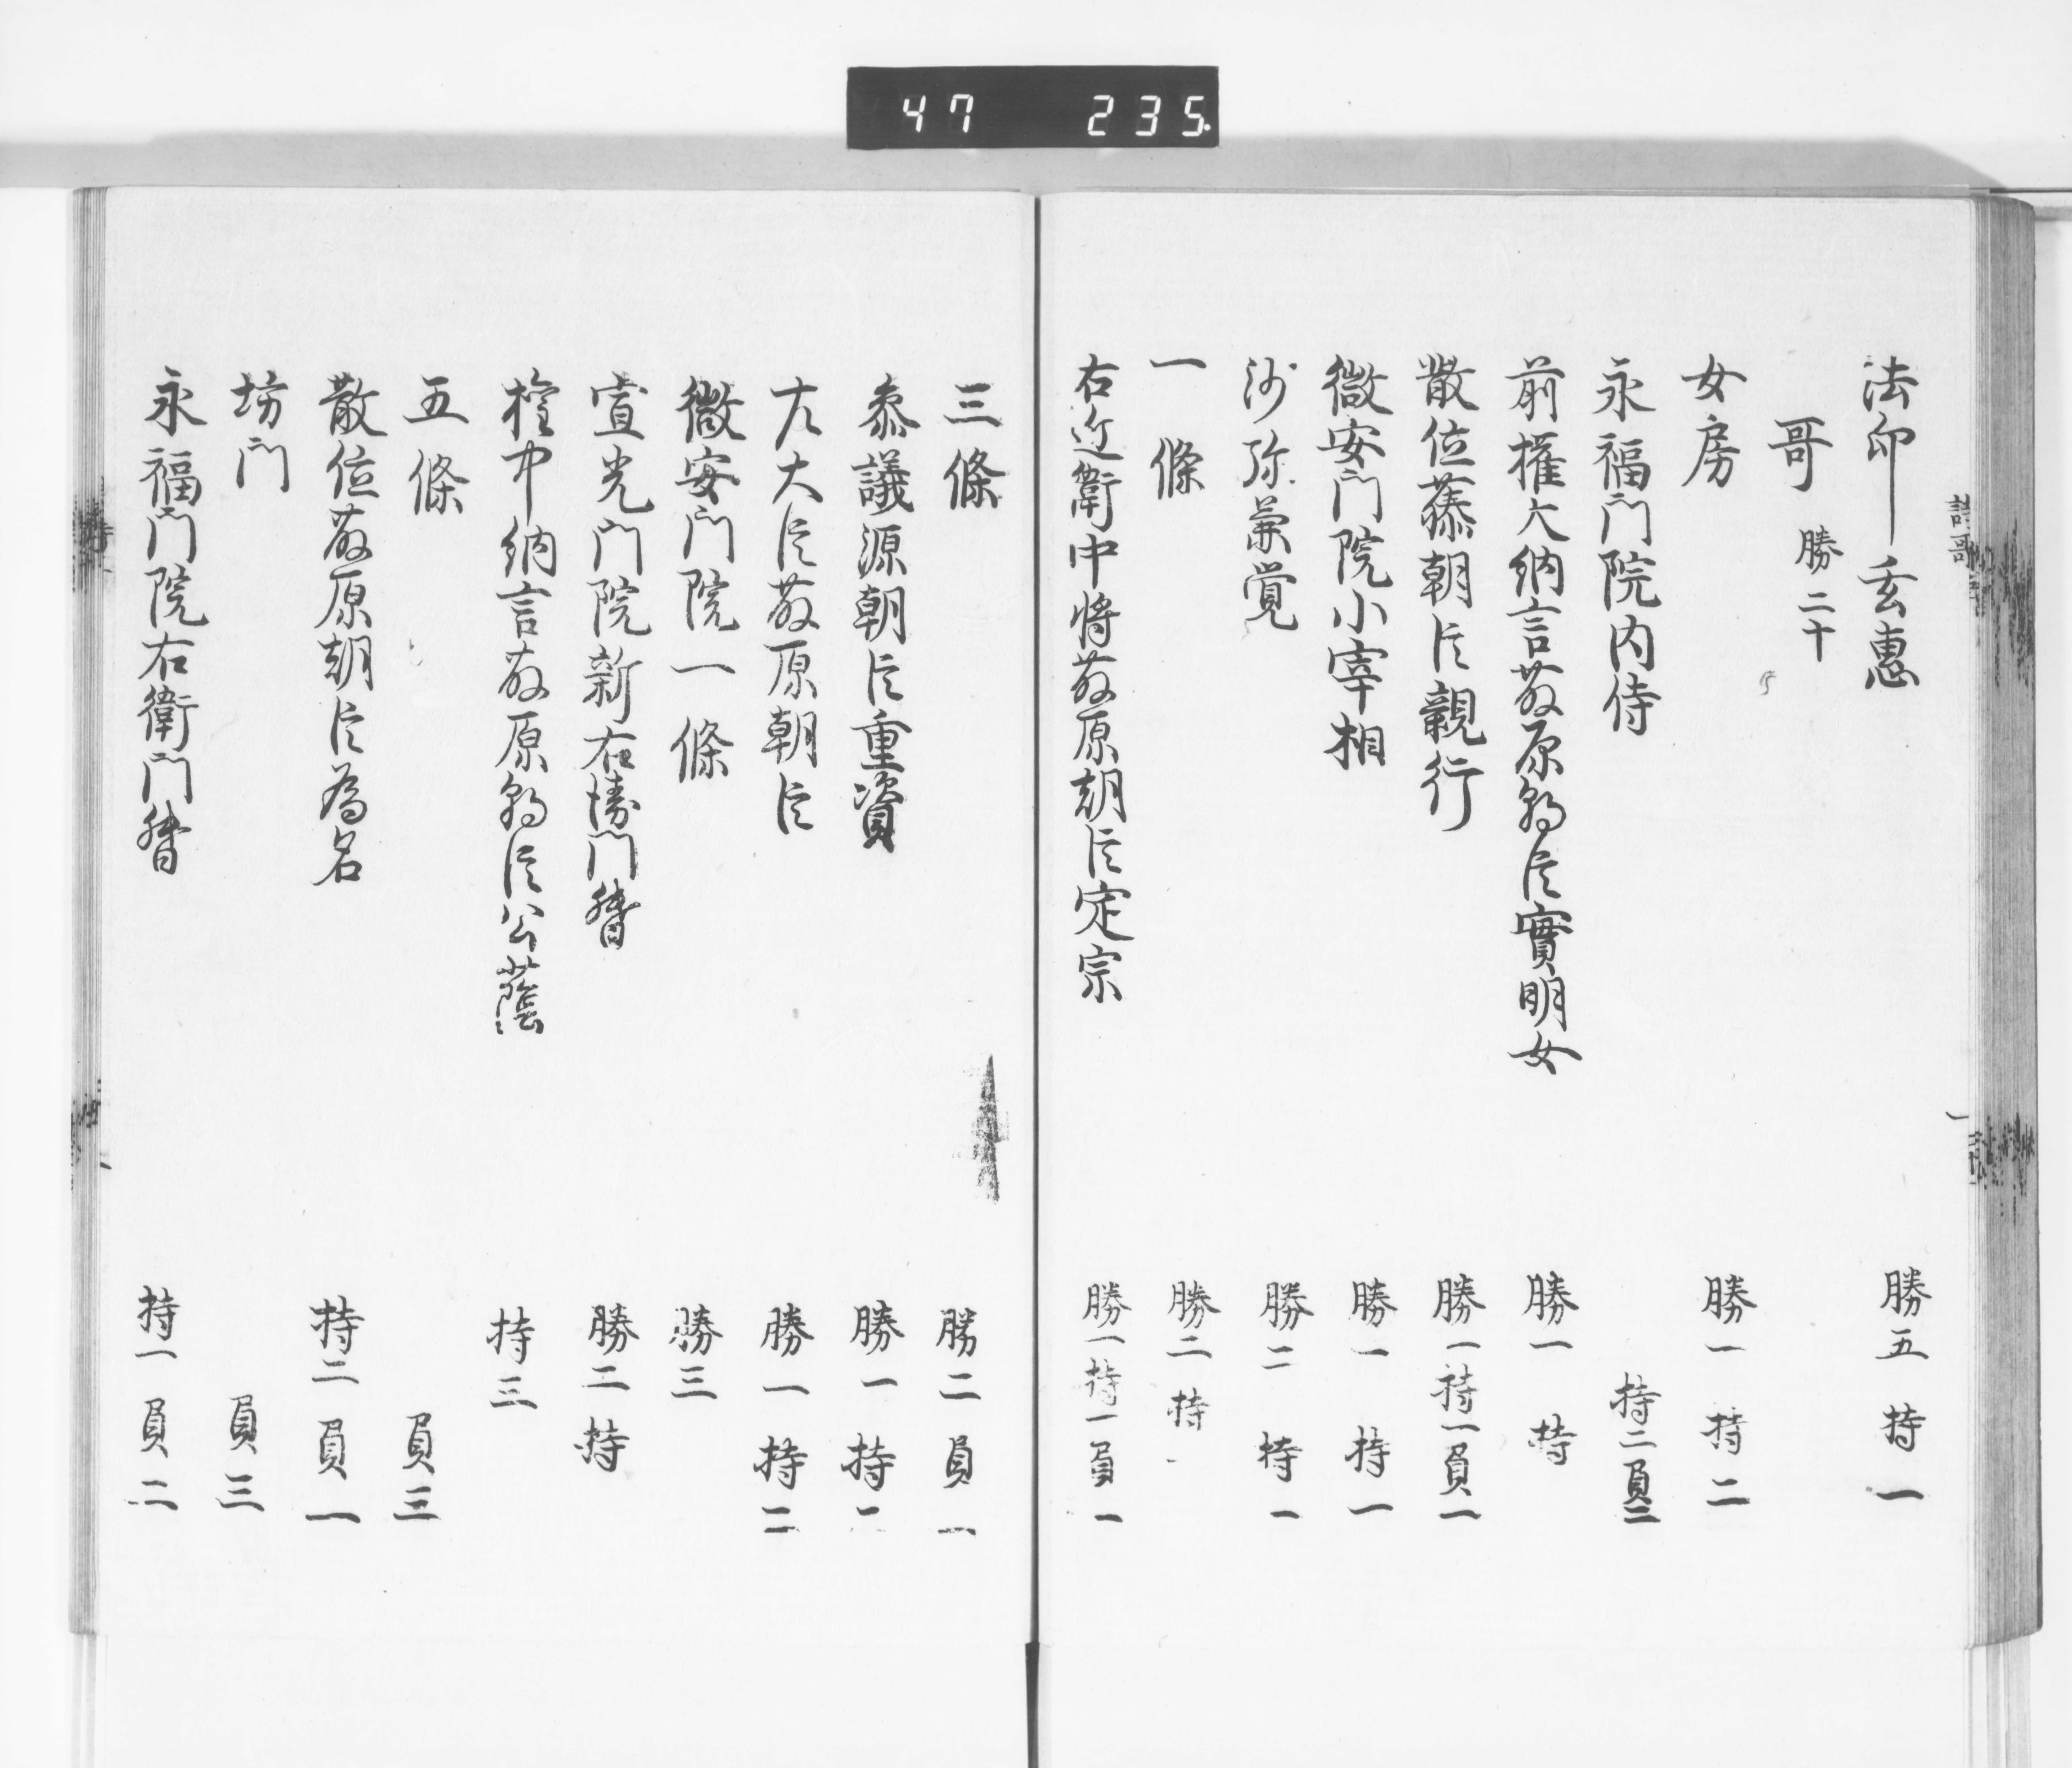 47 235
法印玄惠 勝五 持一
哥 勝二十
女房 勝一 持二
永福門院内侍 持二負二
前權大納言藤原朝臣實明女 勝一 持
散位藤朝臣親行 勝一持一負一
徽安門院小宰相 勝一 持一
沙弥兼覚 勝二 持一
一條 勝二 持一
右近衛中将藤原朝臣定宗 勝一持一負一
三條 勝二負一
叅議源朝臣重資 勝一持二
左大臣藤原朝臣 勝一持二
徽安門院一條 勝三
宣光門院新右衛門督 勝二持
権中納言藤原朝臣公蔭 持三
五條 負三
散位藤原朝臣為名 持二負一
坊門 負三
永福門院右衛門督 持一負二